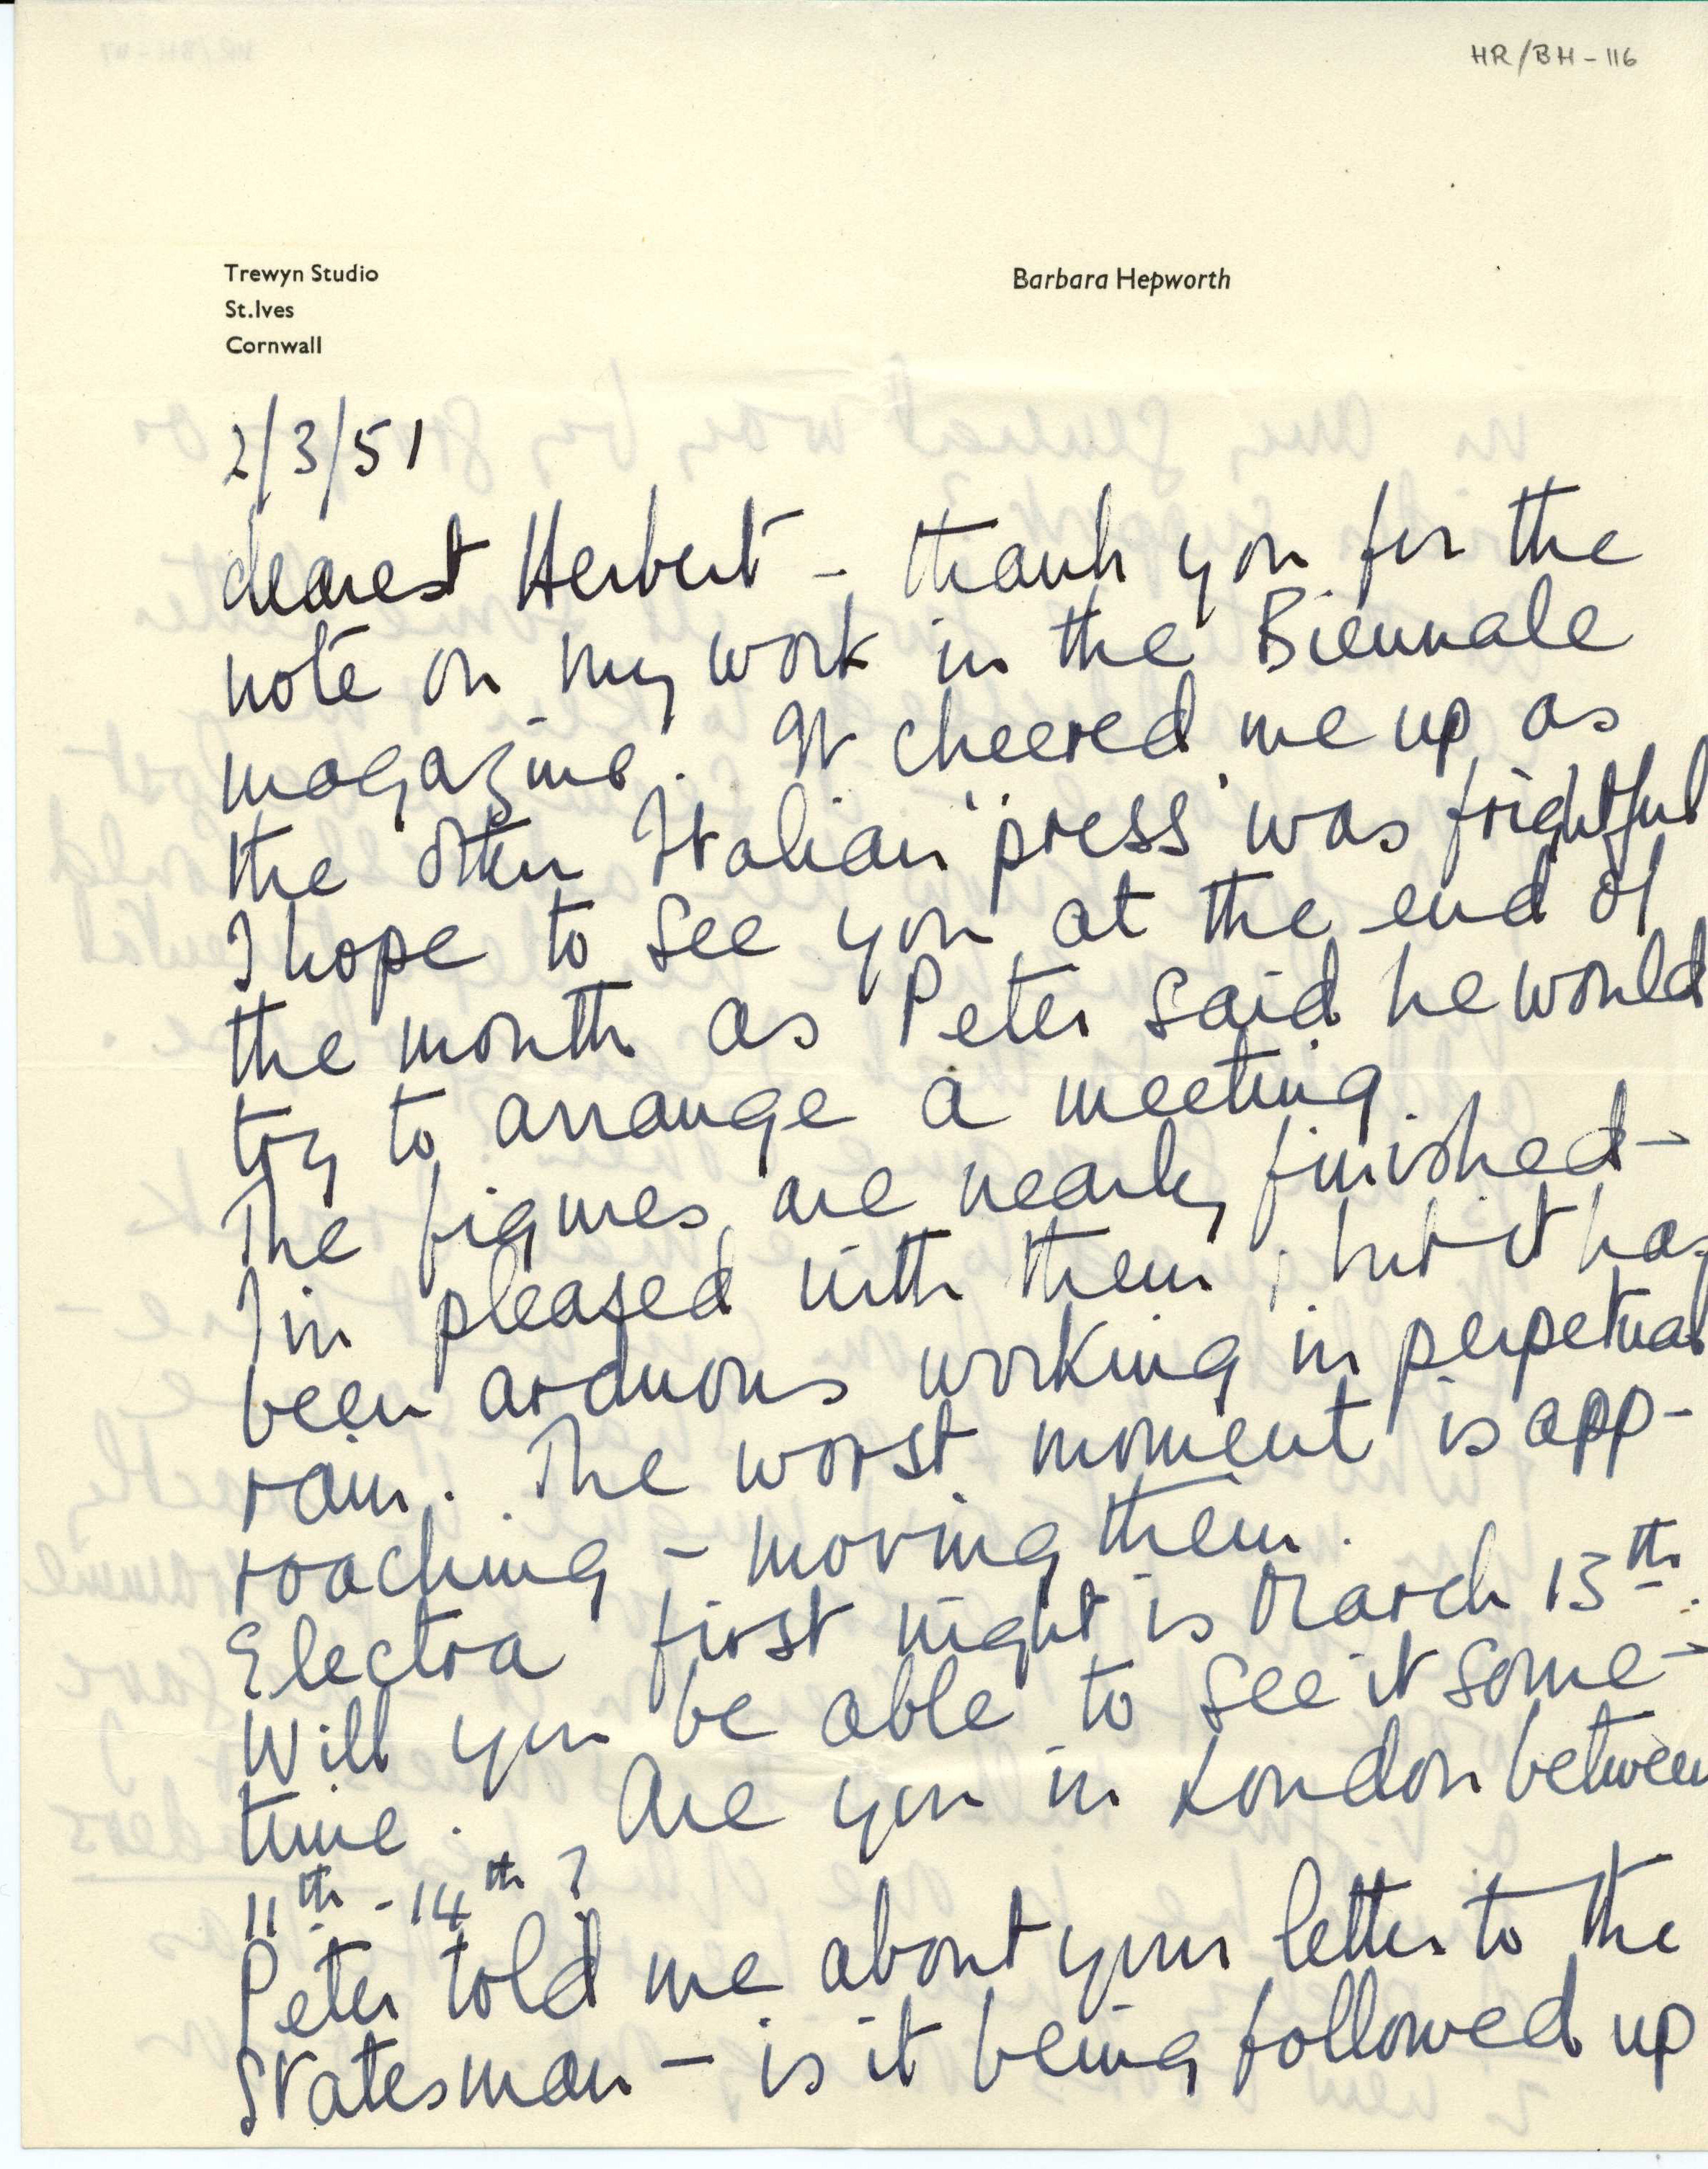 HR/BH-116
Trewyn Studio
Barbara Hepworth
St.Ives
Cornwall
2/3/51
dearest Herbert - thank you for the
note on my work in the Biennale
magazine. It cheered me up as
the other Italian "press" was frightful
I hope to see you at the end of
the month as Peter said he would
try to arrange a meeting.
The figures are nearly finished -
I'm pleased with them, but it has
been arduous working in perpetual
rain. The worst moment is app-
roaching - moving them.
Electra first night is March 13th.
Will you be able to see it some-
time. Are you in London between
11th - 14th?
Peter told me about your letter to the
Statesman - is it being followed up